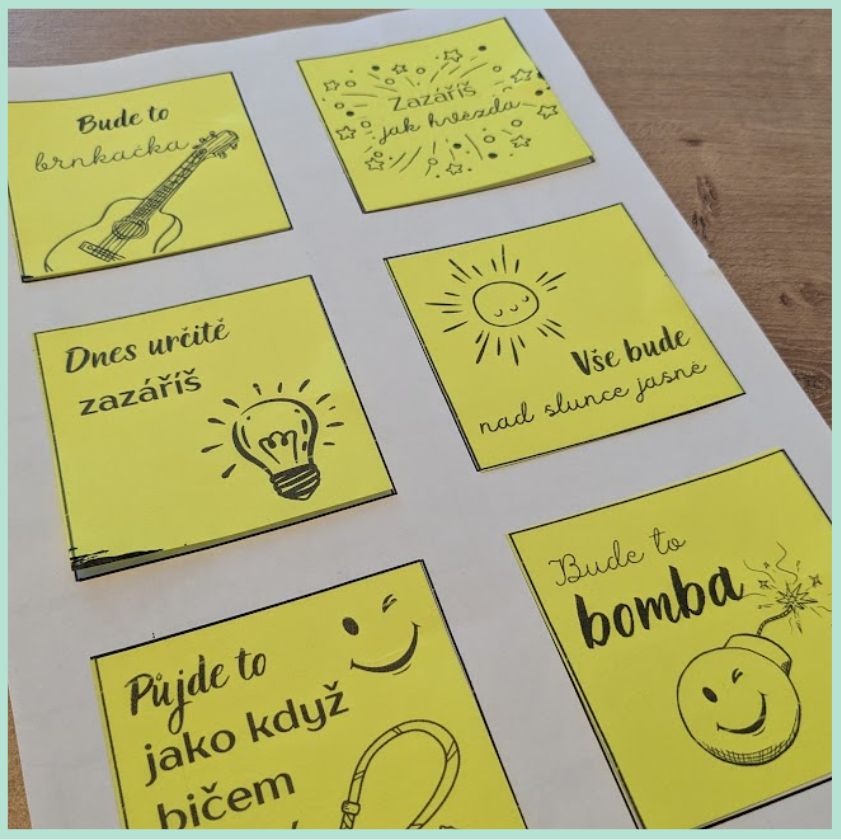 Bude to
brnkačka
Zazáříš
jak hvězda
Dnes určitě
zazáříš
Vše bude
nad slunce jasné
Půjde to
jako když
bičem
Bude to
bomba